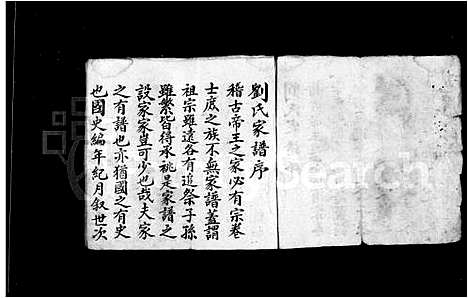 劉氏家譜序
稽古帝王之家必有宗卷
士庶之族不無家譜蓋謂
祖宗雖遠各有追祭子孫
雖繁皆得承祧是家譜之
設家家豈可少也哉夫家
之有譜也亦猶國之有史
也國史編年紀月叙世次
Search